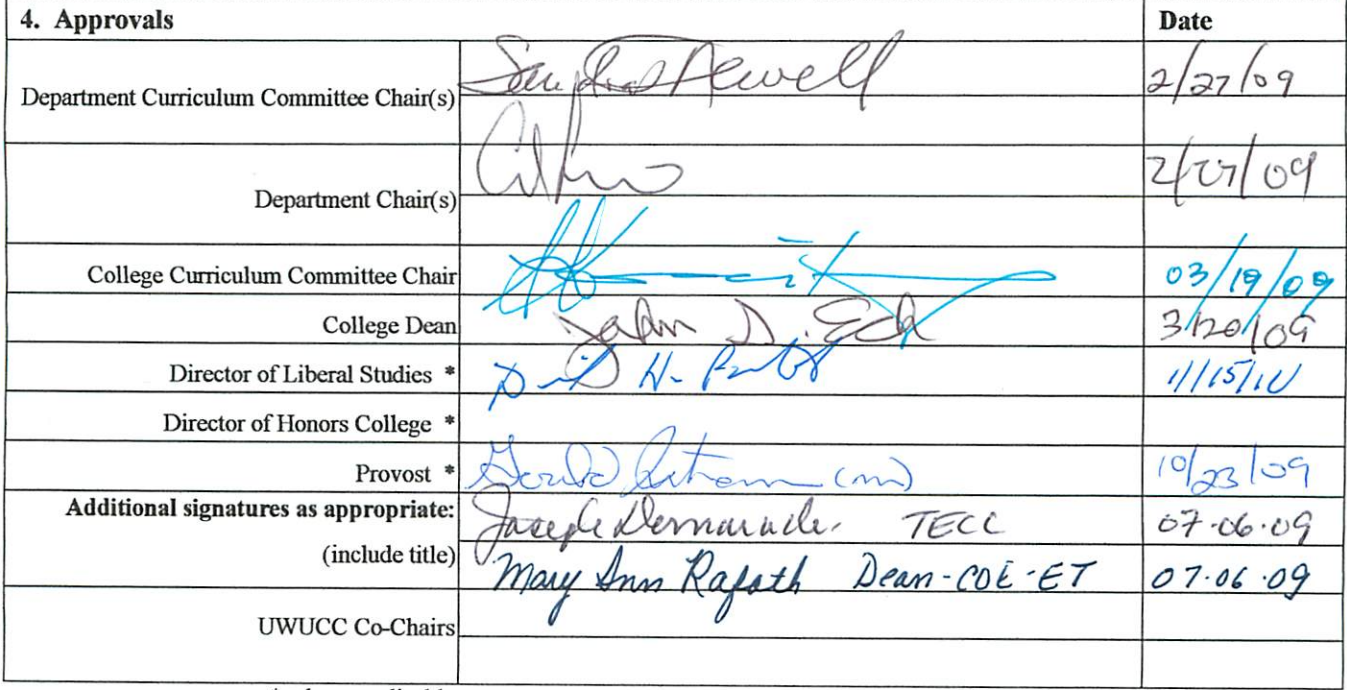 4. Approvals Date
Department Curriculum Committee Chair(s) Newell 2/27/09
Department Chair(s) 2/27/09
College Curriculum Committee Chair 03/19/09
College Dean John D. Eck 3/20/09
Director of Liberal Studies * David H. 11/15/10
Director of Honors College *
Provost * (m) 10/23/09
Additional signatures as appropriate: Joseph TECC 07.06.09
(include title) Mary Ann Rafoth Dean-COE-ET 07.06.09
UWUCC Co-Chairs